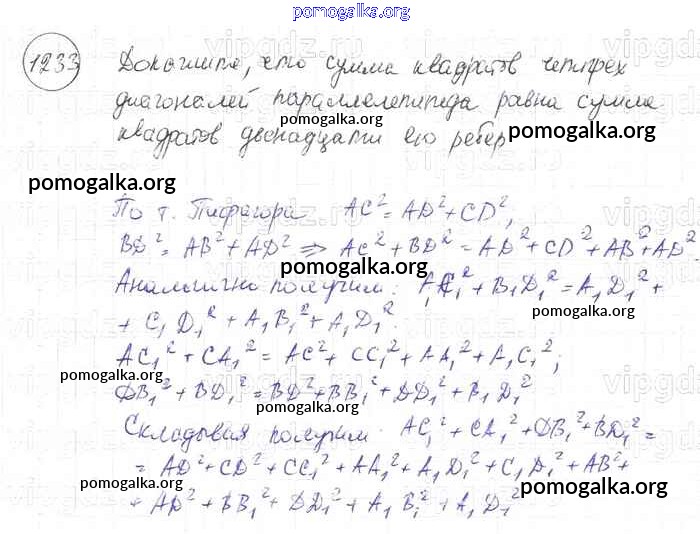 pomogalka.org
1233 Докажите, что сумма квадратов четырех
диагоналей параллелепипеда равна сумме
pomogalka.org
квадратов двенадцати его ребер
pomogalka.org
pomogalka.org
По т. Пифагора AC² = AD² + CD²,
BD² = AB² + AD² ⇒ AC² + BD² = AD² + CD² + AB² + AD².
pomogalka.org
Аналогично получим: A₁C₁² + B₁D₁² = A₁D₁² +
+ C₁D₁² + A₁B₁² + A₁D₁².
pomogalka.org
AC₁² + CA₁² = AC² + CC₁² + AA₁² + A₁C₁²;
pomogalka.org
DB₁² + BD₁² = BD² + BB₁² + DD₁² + B₁D₁²
pomogalka.org
Складывая получим: AC₁² + CA₁² + DB₁² + BD₁² =
= AD² + CD² + CC₁² + AA₁² + A₁D₁² + C₁D₁² + AB² +
pomogalka.org
+ AD² + BB₁² + DD₁² + A₁B₁² + A₁D₁²
pomogalka.org